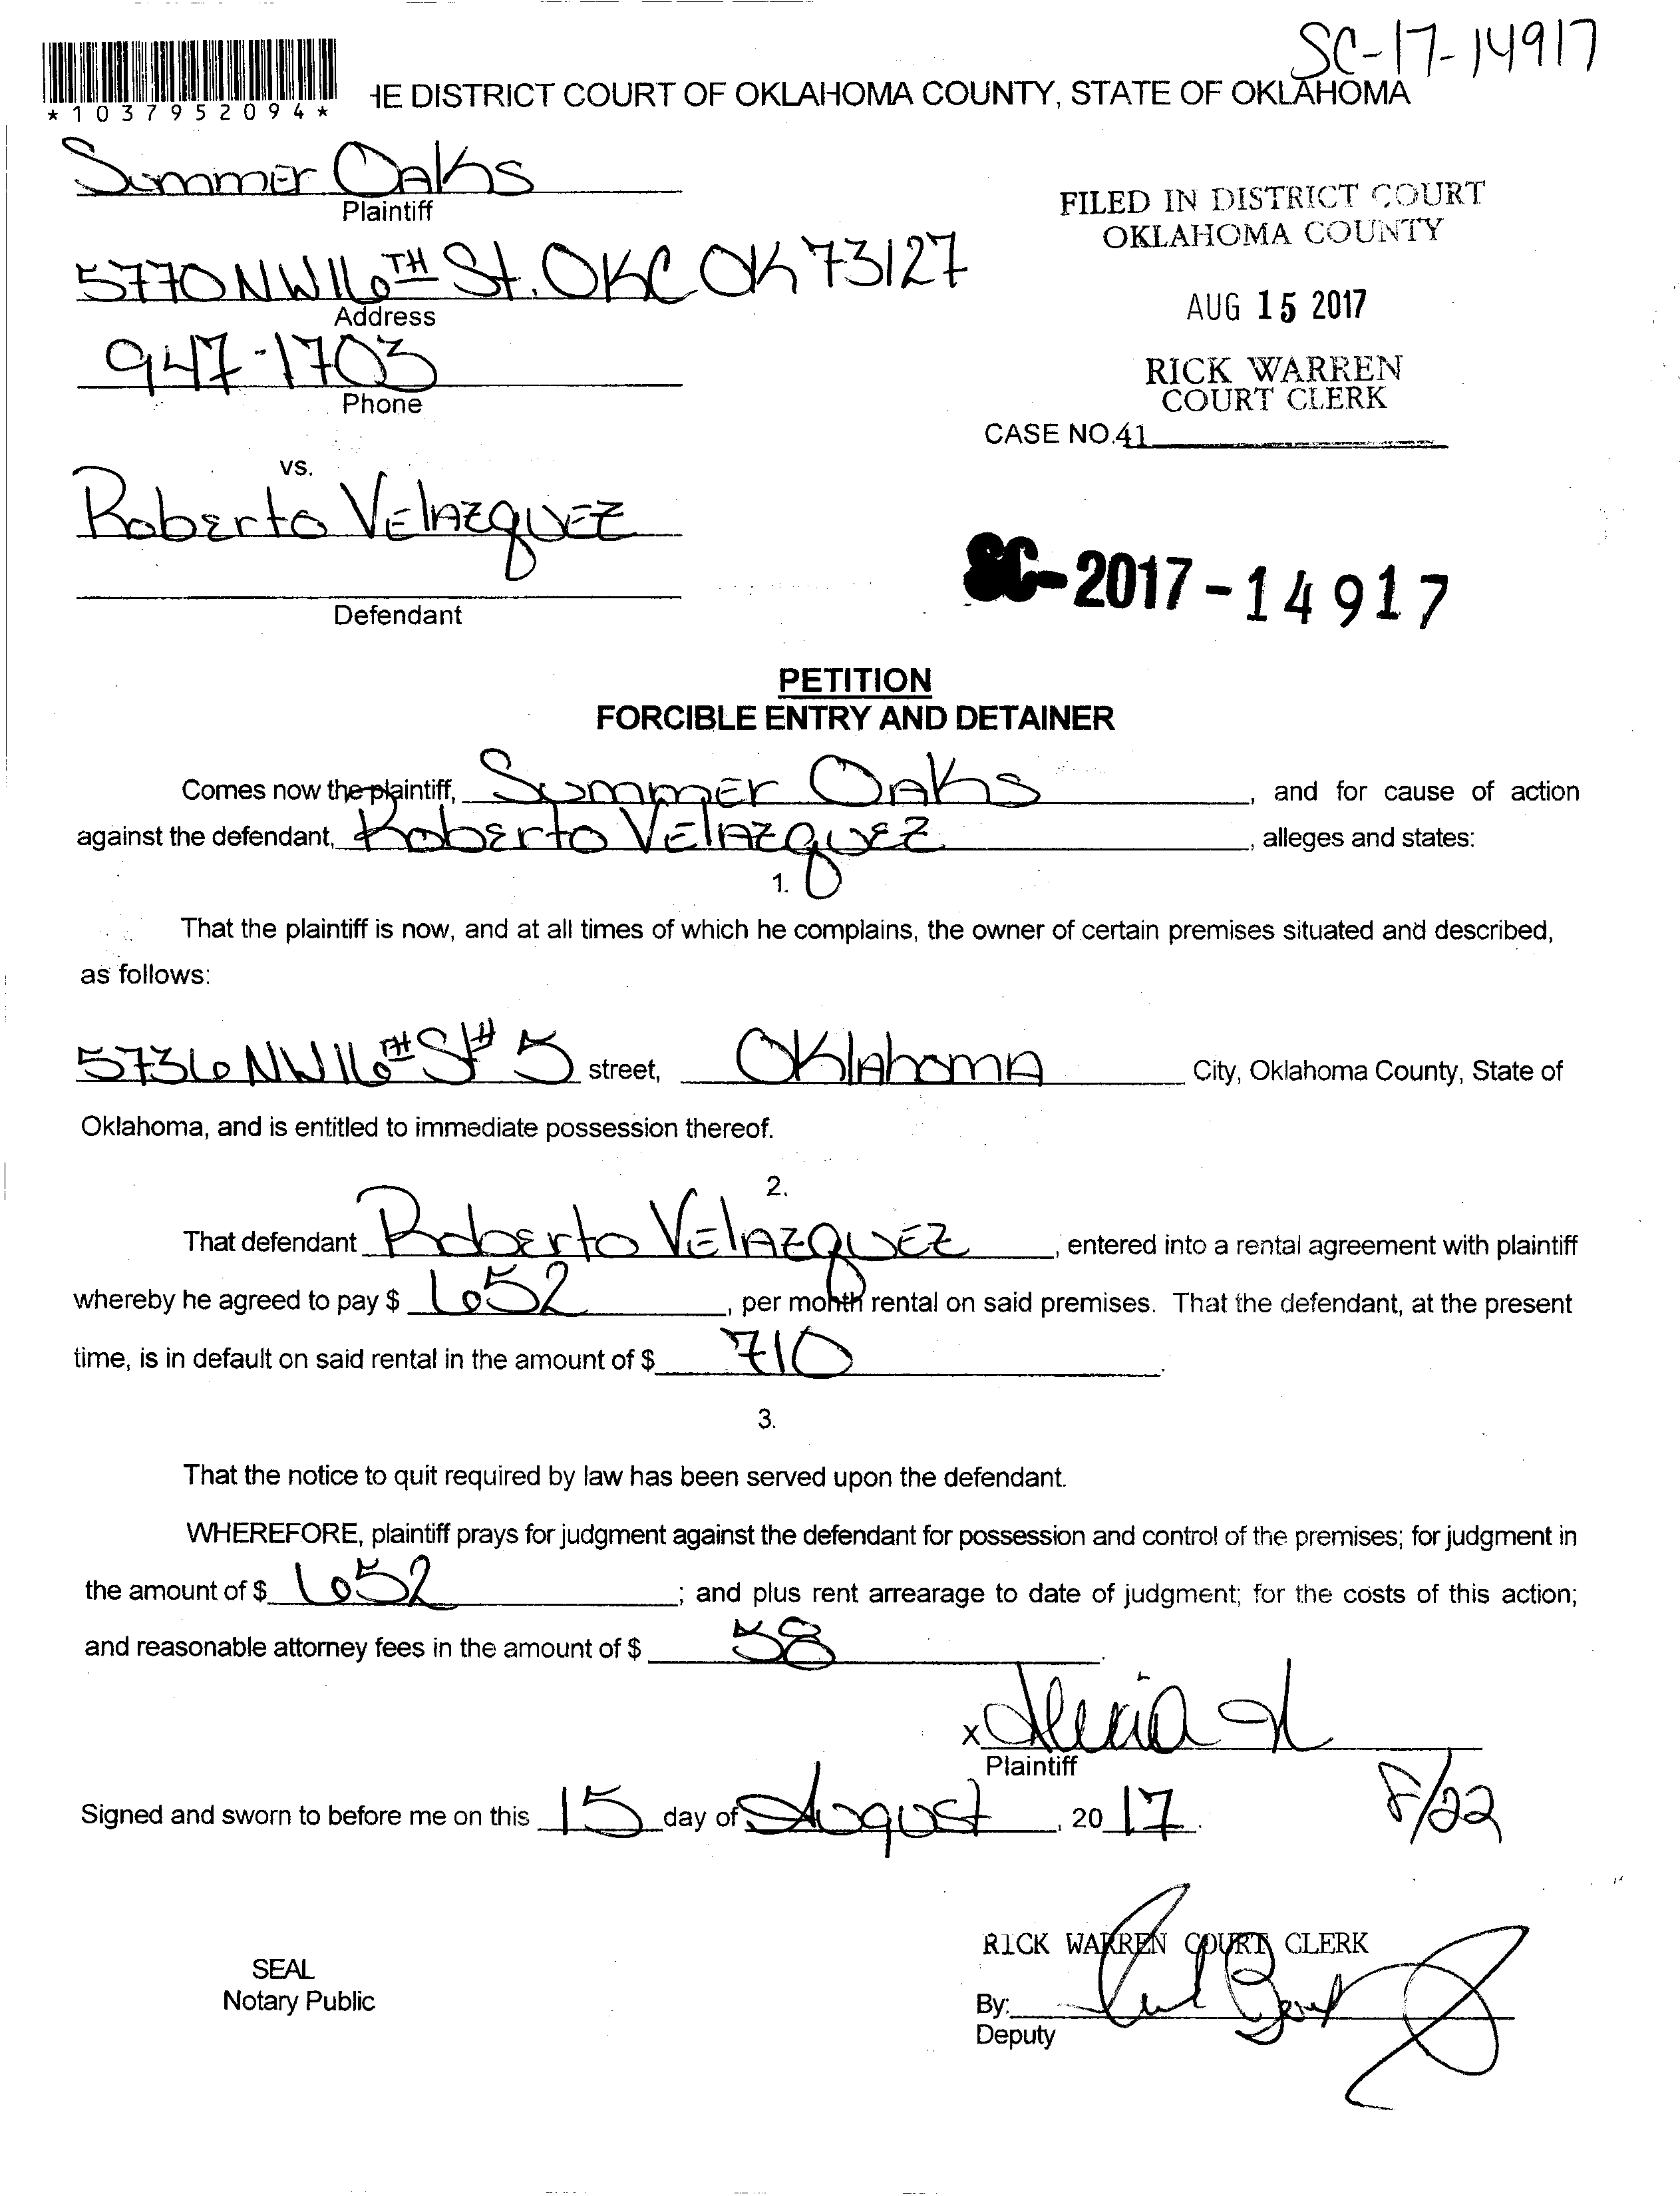 SC-17-14917
*1037952094*
HE DISTRICT COURT OF OKLAHOMA COUNTY, STATE OF OKLAHOMA
Summer Oaks
Plaintiff
5770 NW 16TH St. OKC OK 73127
Address
947-1703
Phone
FILED IN DISTRICT COURT
OKLAHOMA COUNTY
AUG 15 2017
RICK WARREN
COURT CLERK
CASE NO.41
vs.
Roberto Velazquez
Defendant
SC-2017-14917
PETITION
FORCIBLE ENTRY AND DETAINER
Comes now the plaintiff, Summer Oaks, and for cause of action
against the defendant, Roberto Velazquez, alleges and states:
1.
That the plaintiff is now, and at all times of which he complains, the owner of certain premises situated and described,
as follows:
5736 NW 16TH St # 5 street, Oklahoma City, Oklahoma County, State of
Oklahoma, and is entitled to immediate possession thereof.
2.
That defendant Roberto Velazquez, entered into a rental agreement with plaintiff
whereby he agreed to pay $ 652, per month rental on said premises. That the defendant, at the present
time, is in default on said rental in the amount of $ 710.
3.
That the notice to quit required by law has been served upon the defendant.
WHEREFORE, plaintiff prays for judgment against the defendant for possession and control of the premises; for judgment in
the amount of $ 652; and plus rent arrearage to date of judgment; for the costs of this action;
and reasonable attorney fees in the amount of $ 58.
X
Plaintiff
8/22
Signed and sworn to before me on this 15 day of August, 2017.
RICK WARREN COURT CLERK
SEAL
Notary Public
By:
Deputy